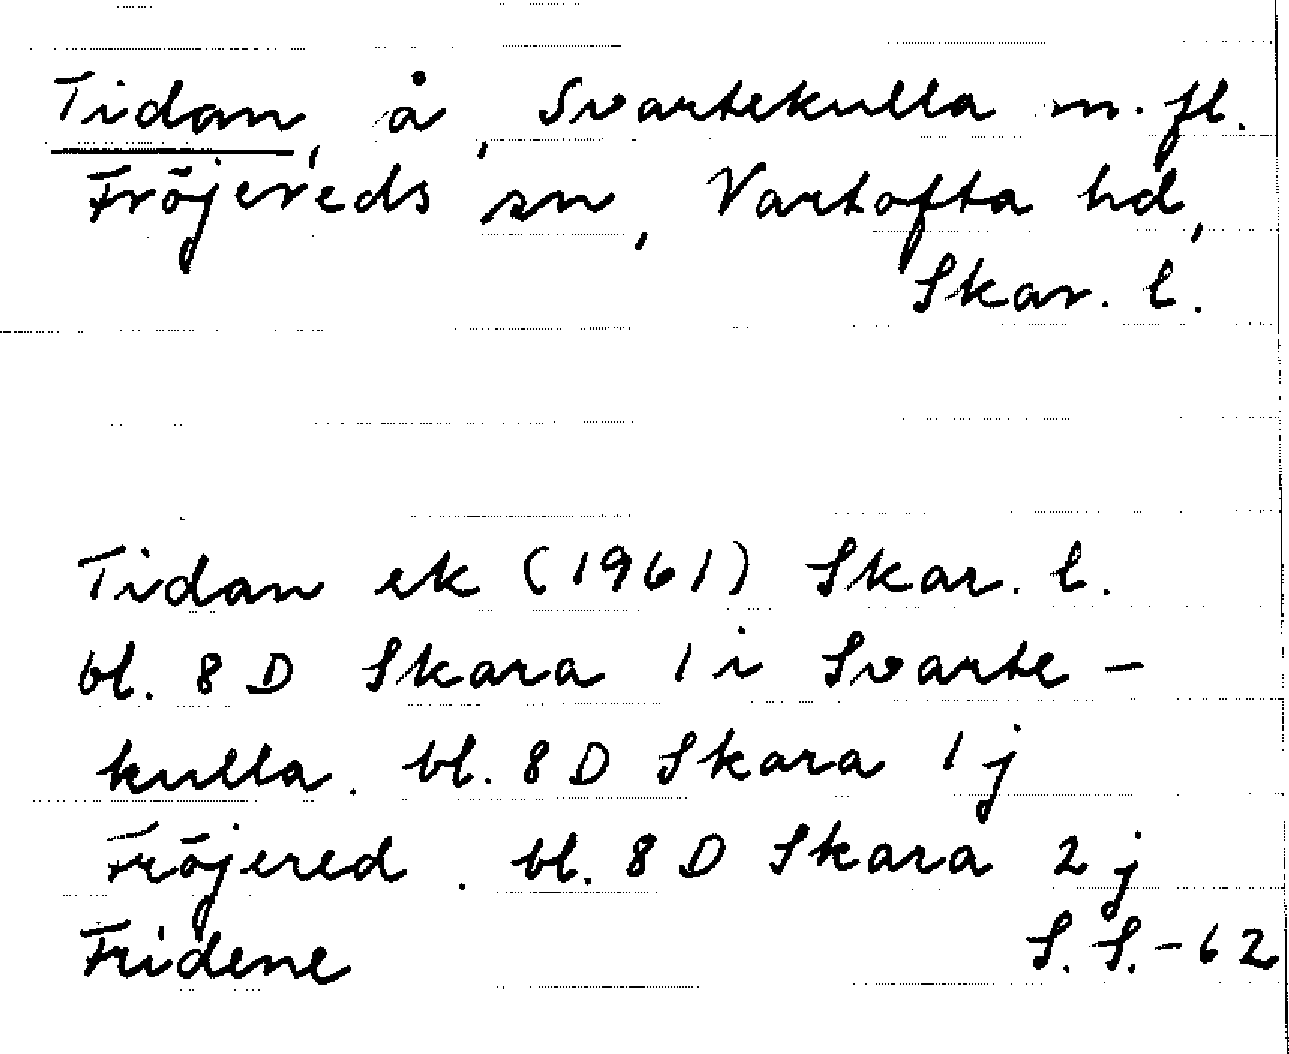 Tidan, å, Svartekulla m. fl.
Fröjereds sn, Vartofta hd,
Skar. l.
Tidan ek (1961) Skar. l.
bl. 8 D Skara 1 i Svarte-
kulla. bl. 8 D Skara 1 j
Fröjered. bl. 8 D Skara 2 j
Fridene S. S. - 62